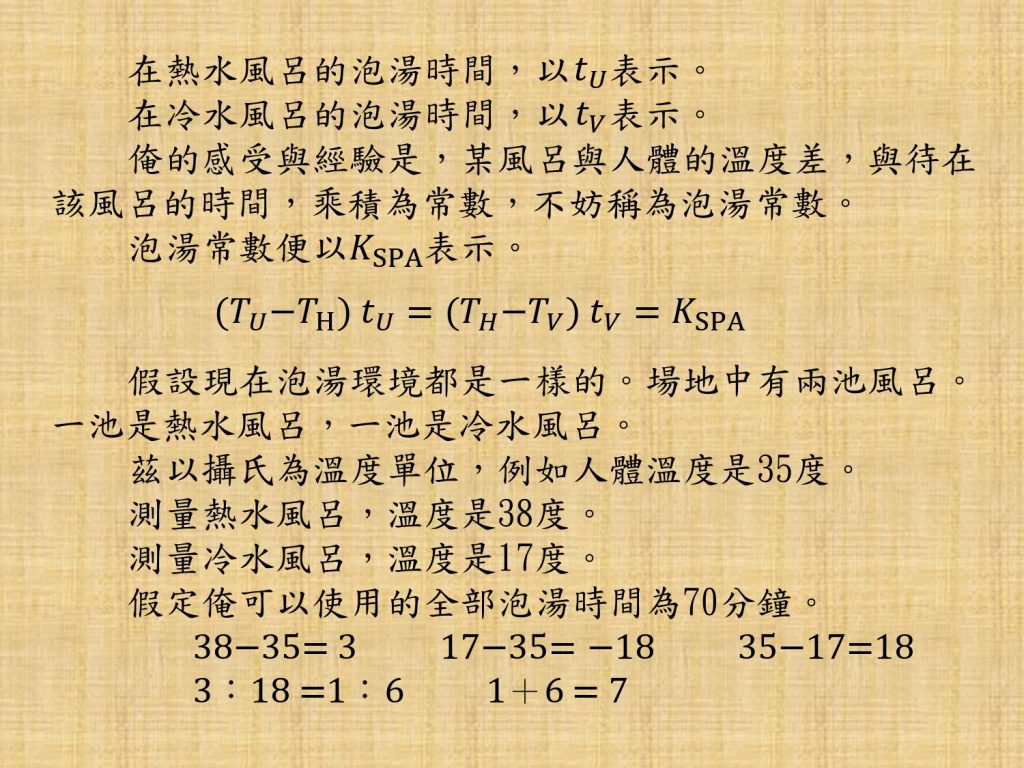 在熱水風呂的泡湯時間，以𝑡𝑈表示。
在冷水風呂的泡湯時間，以𝑡𝑉表示。
俺的感受與經驗是，某風呂與人體的溫度差，與待在
該風呂的時間，乘積為常數，不妨稱為泡湯常數。
泡湯常數便以𝐾SPA表示。
(𝑇𝑈−𝑇H) 𝑡𝑈 = (𝑇𝐻−𝑇𝑉) 𝑡𝑉 = 𝐾SPA
假設現在泡湯環境都是一樣的。場地中有兩池風呂。
一池是熱水風呂，一池是冷水風呂。
茲以攝氏為溫度單位，例如人體溫度是35度。
測量熱水風呂，溫度是38度。
測量冷水風呂，溫度是17度。
假定俺可以使用的全部泡湯時間為70分鐘。
38−35= 3 17−35= −18 35−17=18
3：18 =1：6 1＋6 = 7